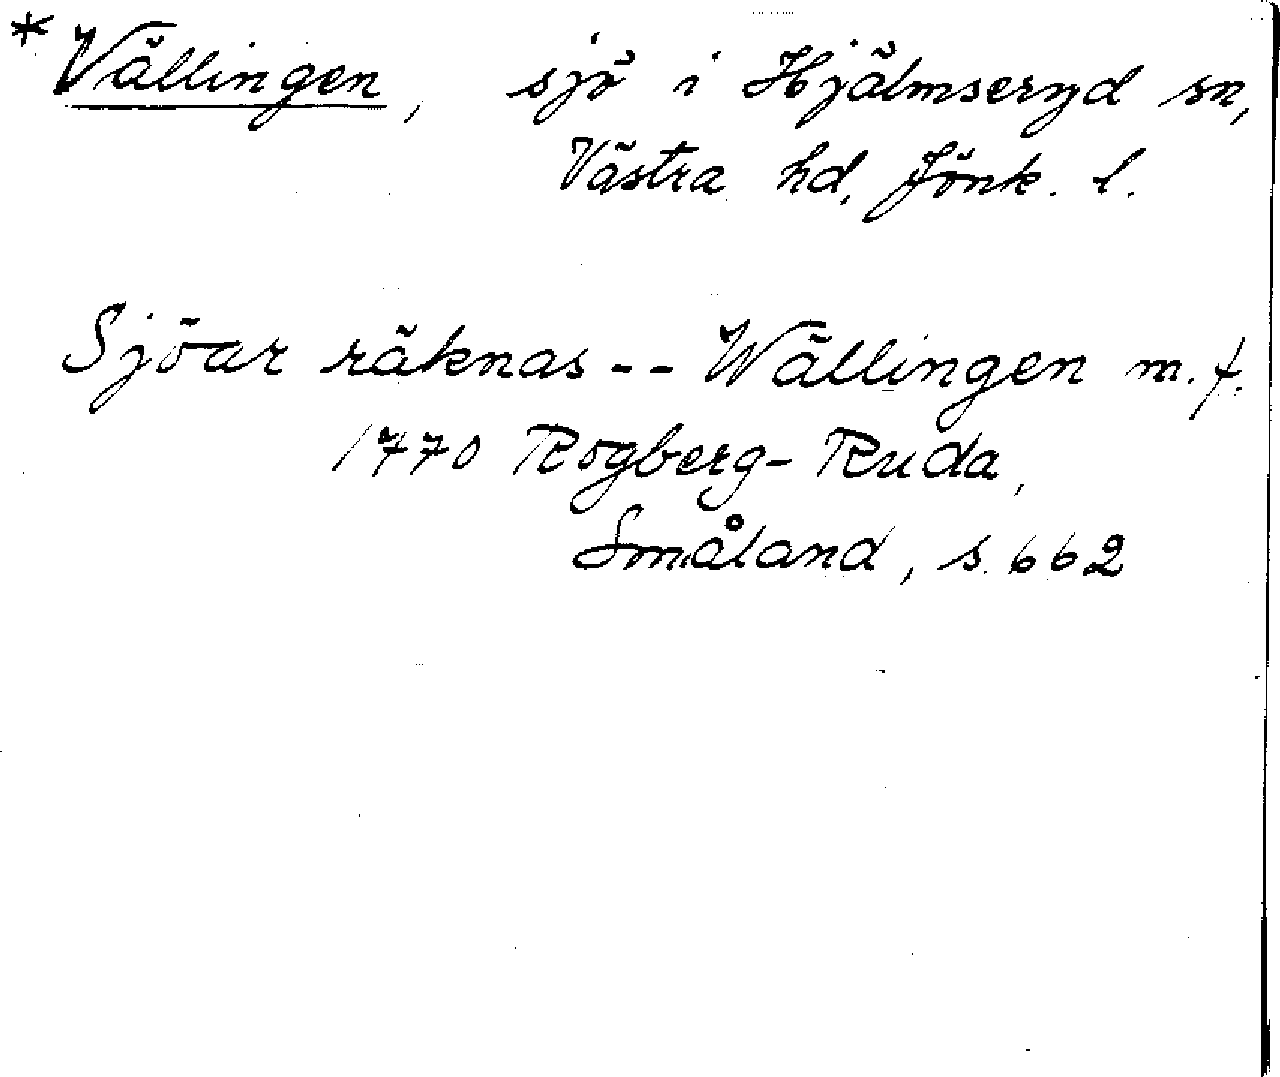 * Vällingen, sjö i Hjälmseryd sn,
Västra hd, Jönk. l.
Sjöar räknas -- Wällingen m.f.
1770 Rogberg-Ruda,
Småland, s. 662